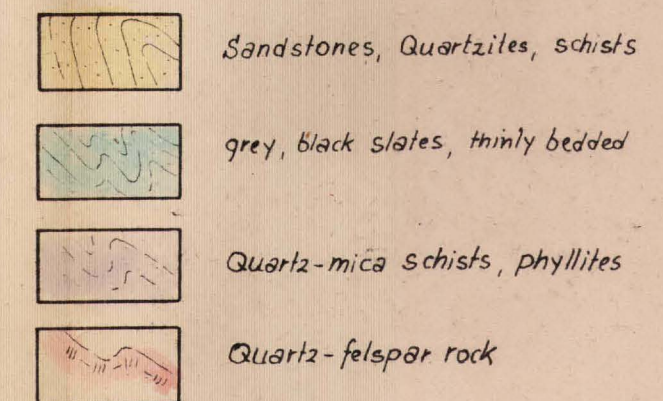 Sandstones, Quartzites, schists
grey, black slates, thinly bedded
Quartz-mica schists, phyllites
Quartz-felspar rock